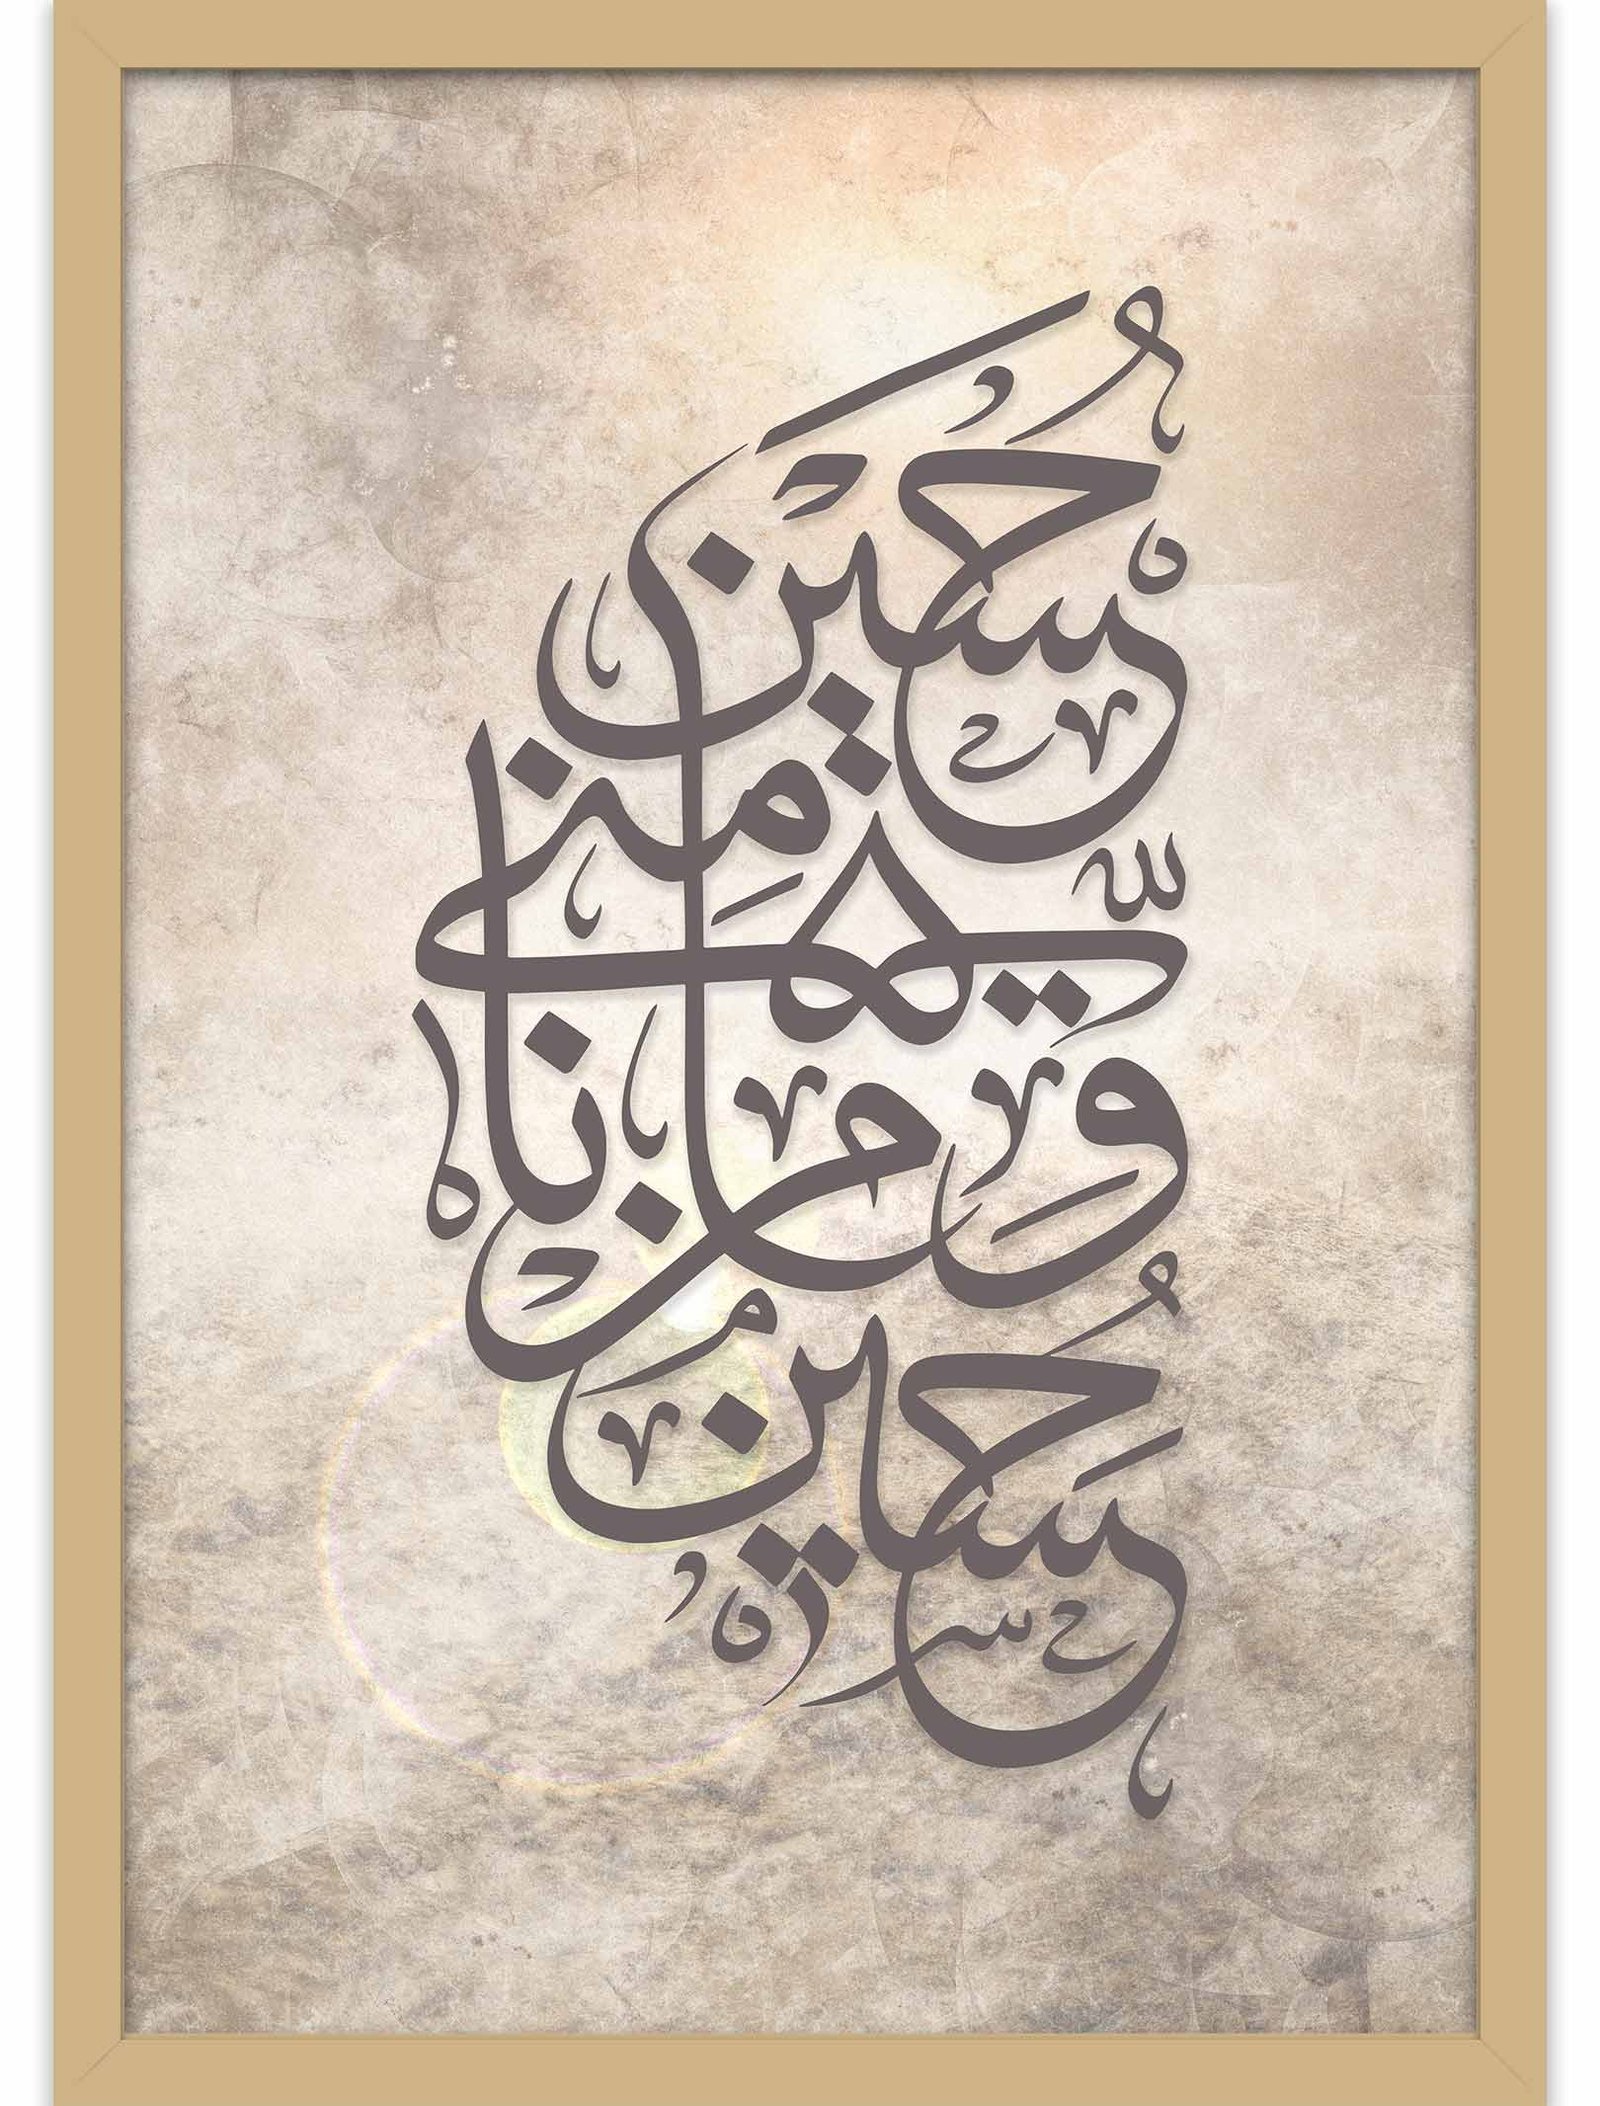 حُسَيْنٌ مِنِّي
وَأَنَا مِنْ
حُسَيْنٍ